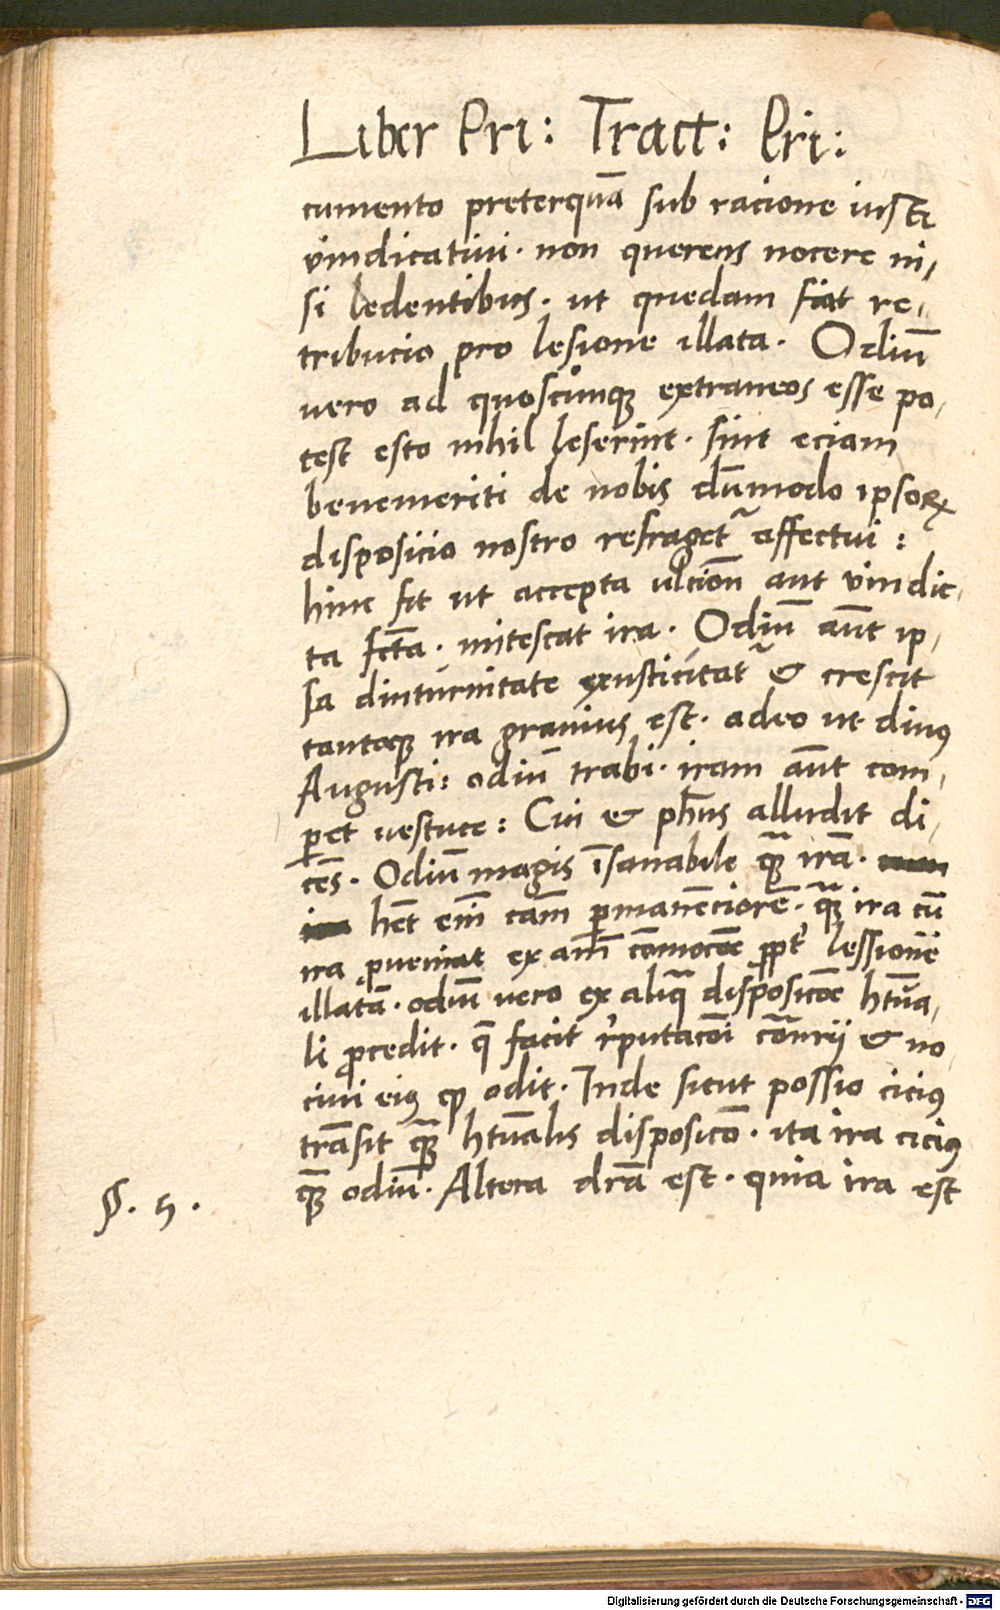 Liber Pri: Tract: Pri:
cumento preterquā sub racione iusti
vindicatiui · non querens nocere ni,
si ledentibus · ut quedam fiat re,
tribucio pro lesione illata · Odiū
vero ad quoscūnqꝫ extraneos esse po,
test esto nihil leserint · sint eciam
benemeriti de nobis dūmodo ipsoꝝ
disposicio nostro refragetr̃ affectui :
hinc fit ut accepta ulciōn aut vindic,
ta fc̄ta · mitescat ira · Odiū aūt ip,
sa diuturnitate exusticitatr̃ & crescit
tantoqꝫ ira grauius est · adeo ut diuꝰ
Augusti: odiū trabi · iram aūt com,
ꝑet uestuce : Cui & ph̄us alludit di,
cēs · Odiū magis īsanabile qꝫ̄ irā ·
hēt em̄ cām ꝑmanēciorē · qꝫ̄ ira cū
ira ꝓueniat ex am̄ cōmocōe ꝓpt̄ lessionē
illatā · odiū vero ex aliqā disposicōe htūa,
li ꝓcedit · qē facit r̓putacōi cōnrij & no
ciui eiꝰ qꝫ odit · Inde sicut possio ciciꝰ
trāsit qꝫ̄ htūalis disposicō · ita ira ciciꝰ
qꝫ̄ odiū · Altera drā est · quia ira est
§ · 5 ·
Digitalisierung gefördert durch die Deutsche Forschungsgemeinschaft - DFG